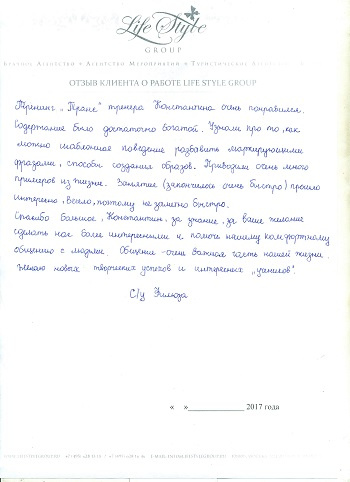 Life Style
GROUP
Брачное Агентство • Агентство Мероприятий • Туристическое
ОТЗЫВ КЛИЕНТА О РАБОТЕ LIFE STYLE GROUP
Тренинг „Транс" тренера Константина очень понравился.
Содержание было достаточно богатой. Узнали про то, как
можно шаблонное поведение разбавить маркирующими
фразами, способы создания образов. Приводили очень много
примеров из жизни. Занятие (закончилось очень быстро) прошло
интересно, весело, поэтому не заметно быстро.
Спасибо большое, Константин, за знание, за ваше желание
сделать нас более интересными и помочь нашему комфортному
общению с людьми. Общение - очень важная часть нашей жизни.
Желаю новых творческих успехов и интересных
С/у
« » 2017 года